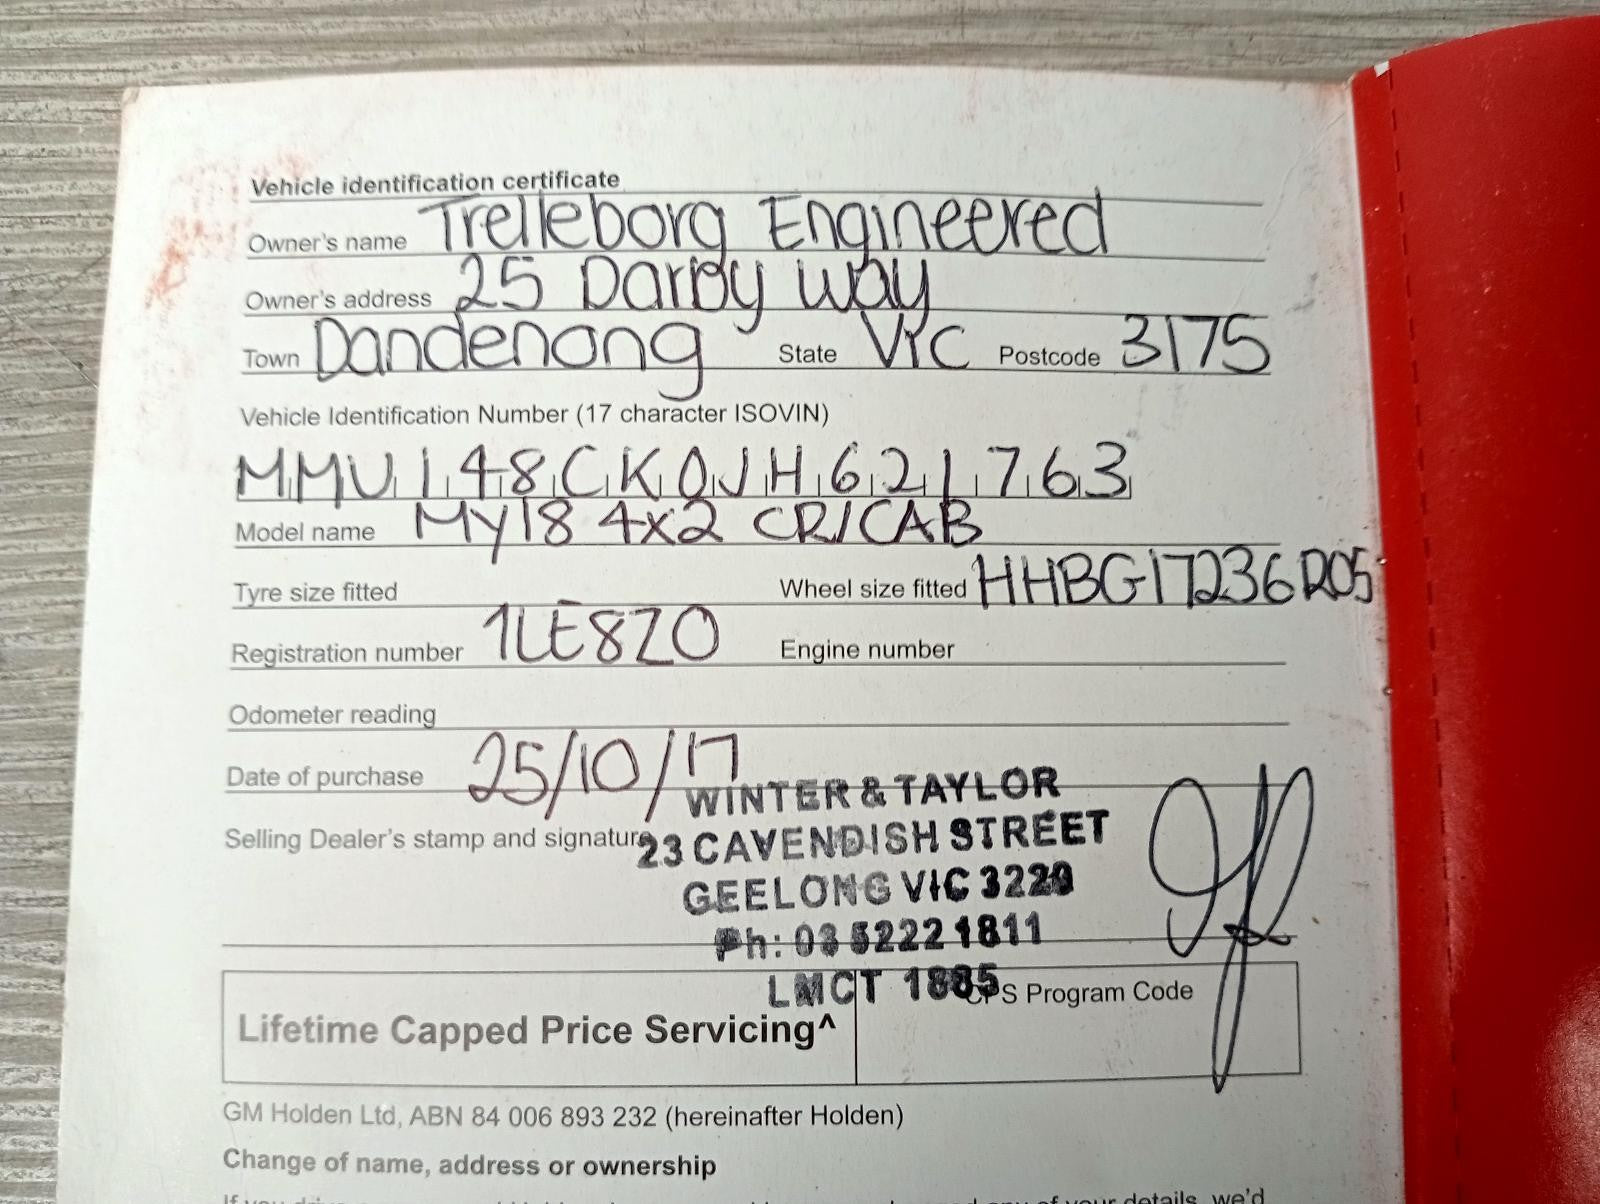 Vehicle identification certificate
Owner's name Trelleborg Engineered
Owner's address 25 Darby Way
Town Dandenong State VIC Postcode 3175
Vehicle Identification Number (17 character ISOVIN)
MMU148CK0JH621763
Model name MY18 4x2 CR/CAB
Tyre size fitted Wheel size fitted HHBG17236R05
Registration number 1LE8ZO Engine number
Odometer reading
Date of purchase 25/10/17
WINTER & TAYLOR
Selling Dealer's stamp and signature 23 CAVENDISH STREET
GEELONG VIC 3220
Ph: 03 5222 1811
LMCT 1885
CPS Program Code
Lifetime Capped Price Servicing^
GM Holden Ltd, ABN 84 006 893 232 (hereinafter Holden)
Change of name, address or ownership